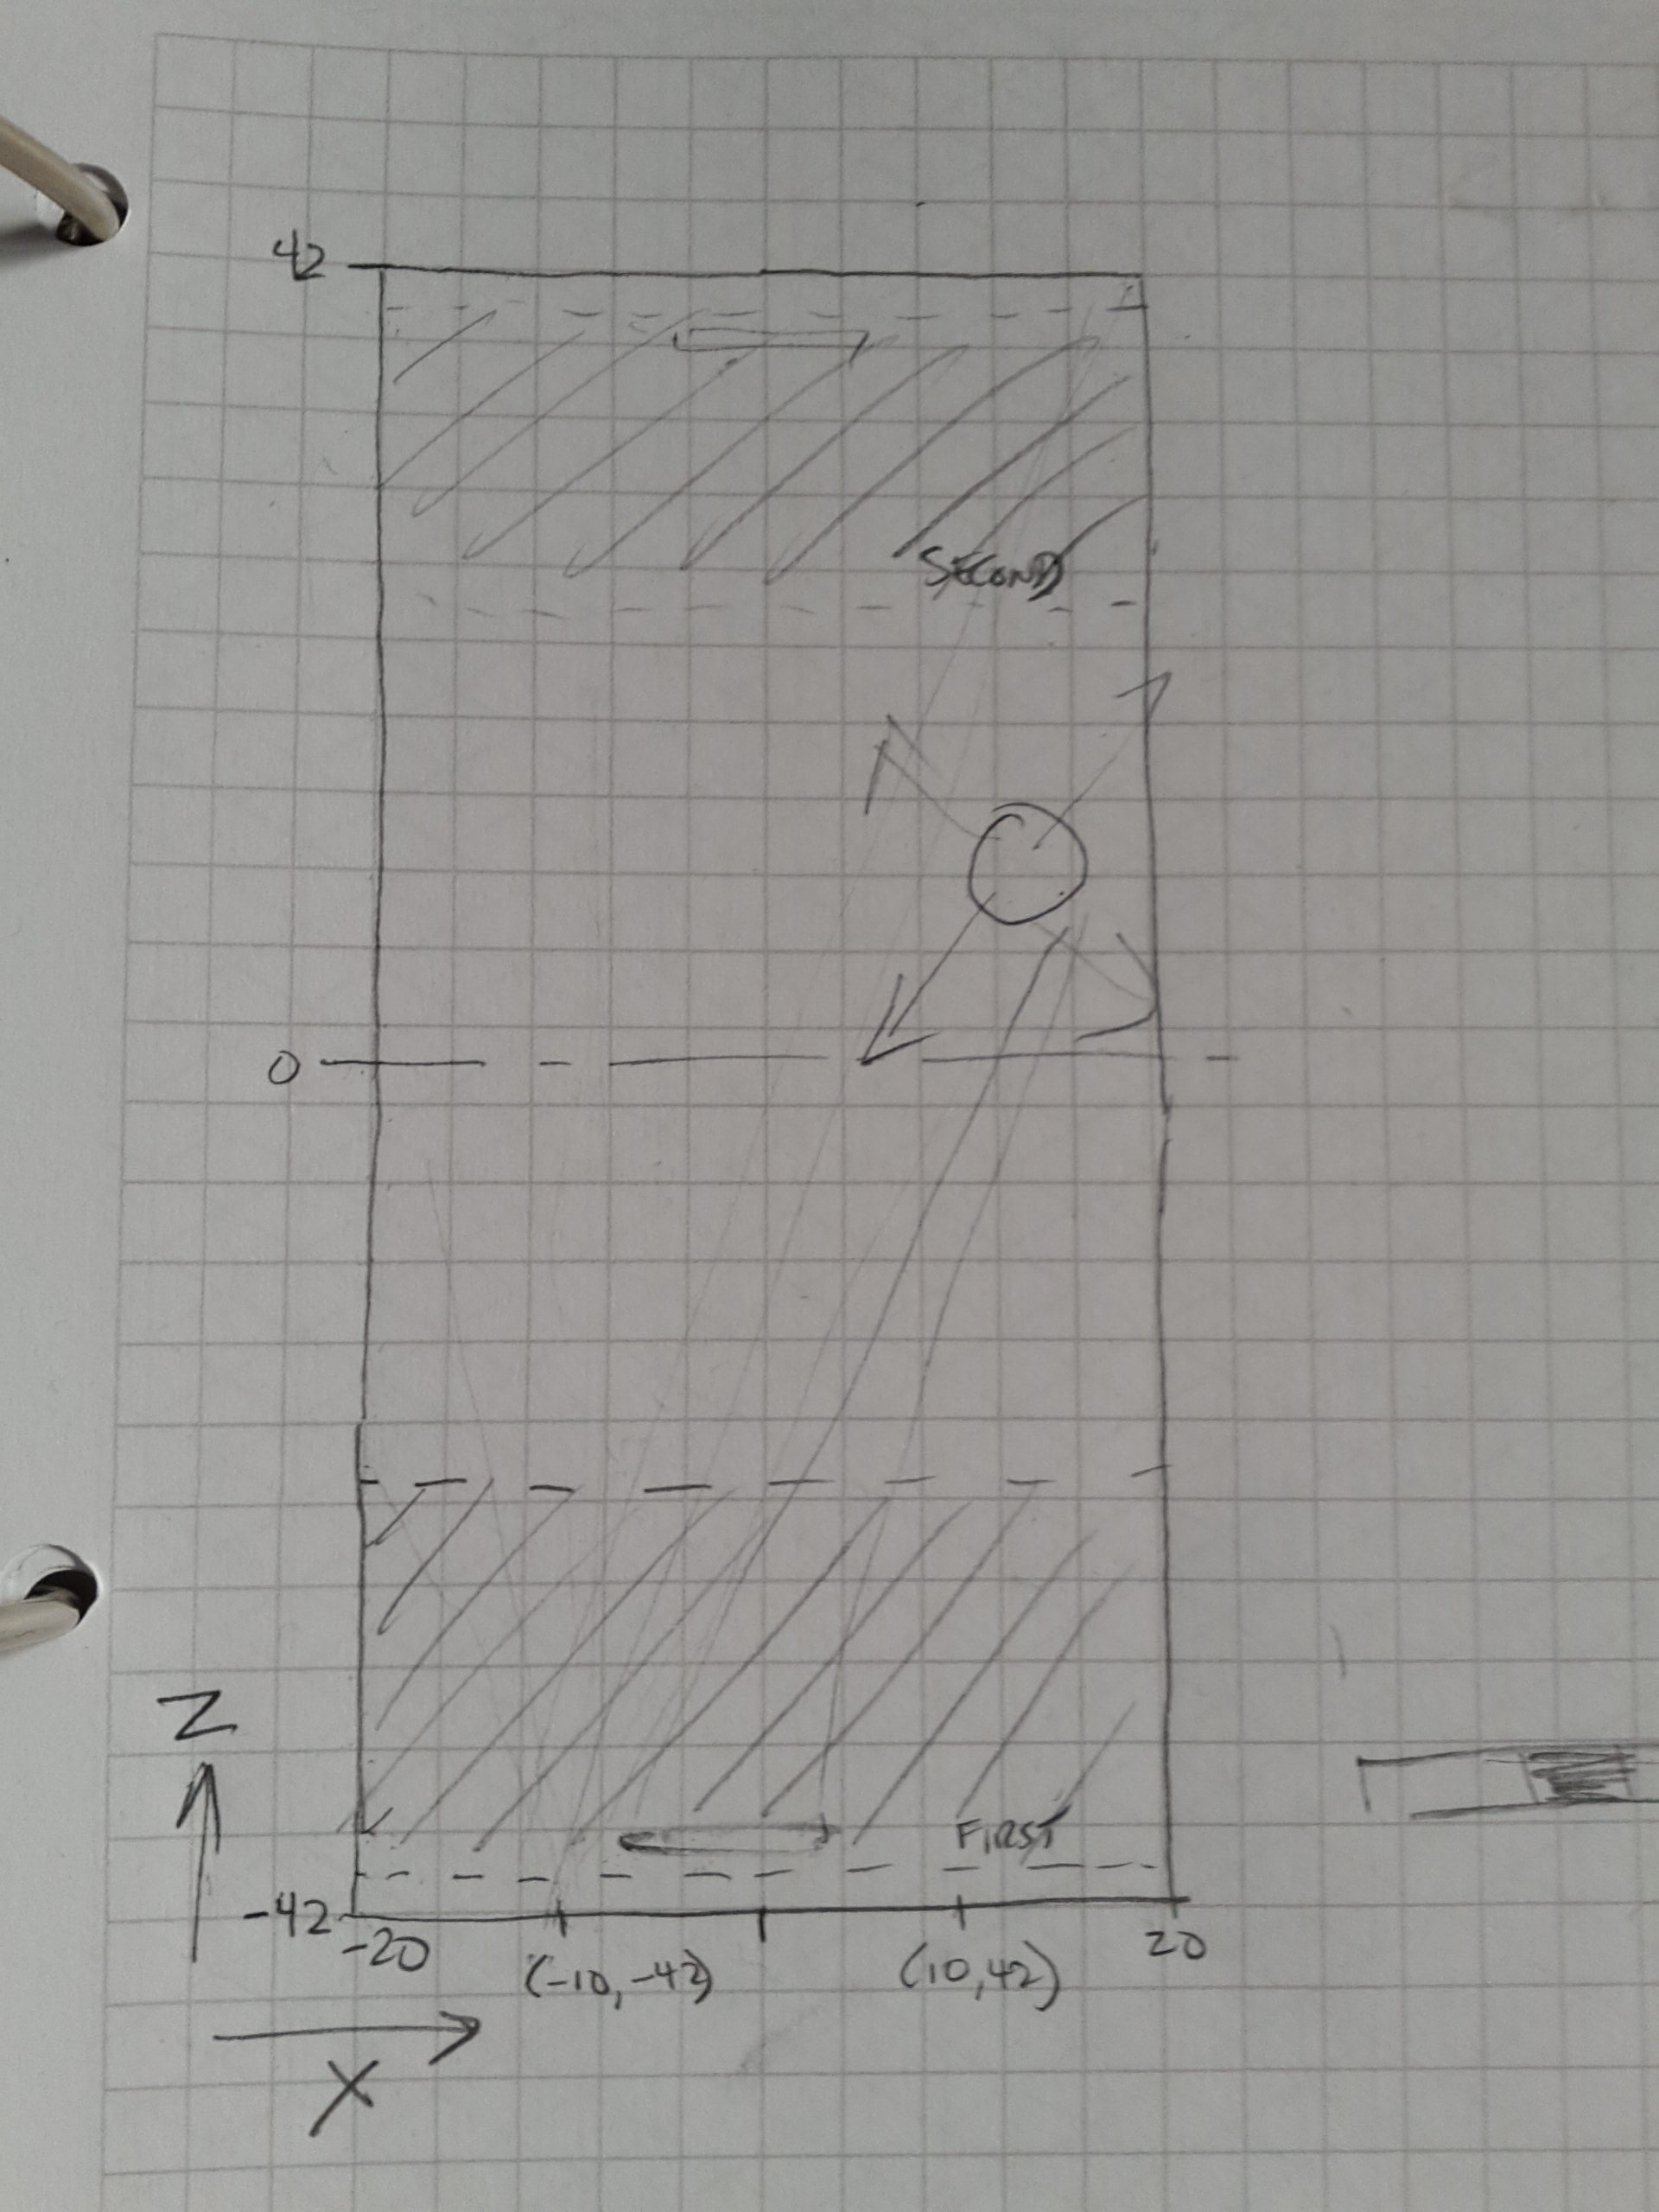 42
SECOND
0
Z
FIRST
-42
-20
20
(-10,-42)
(10,42)
X